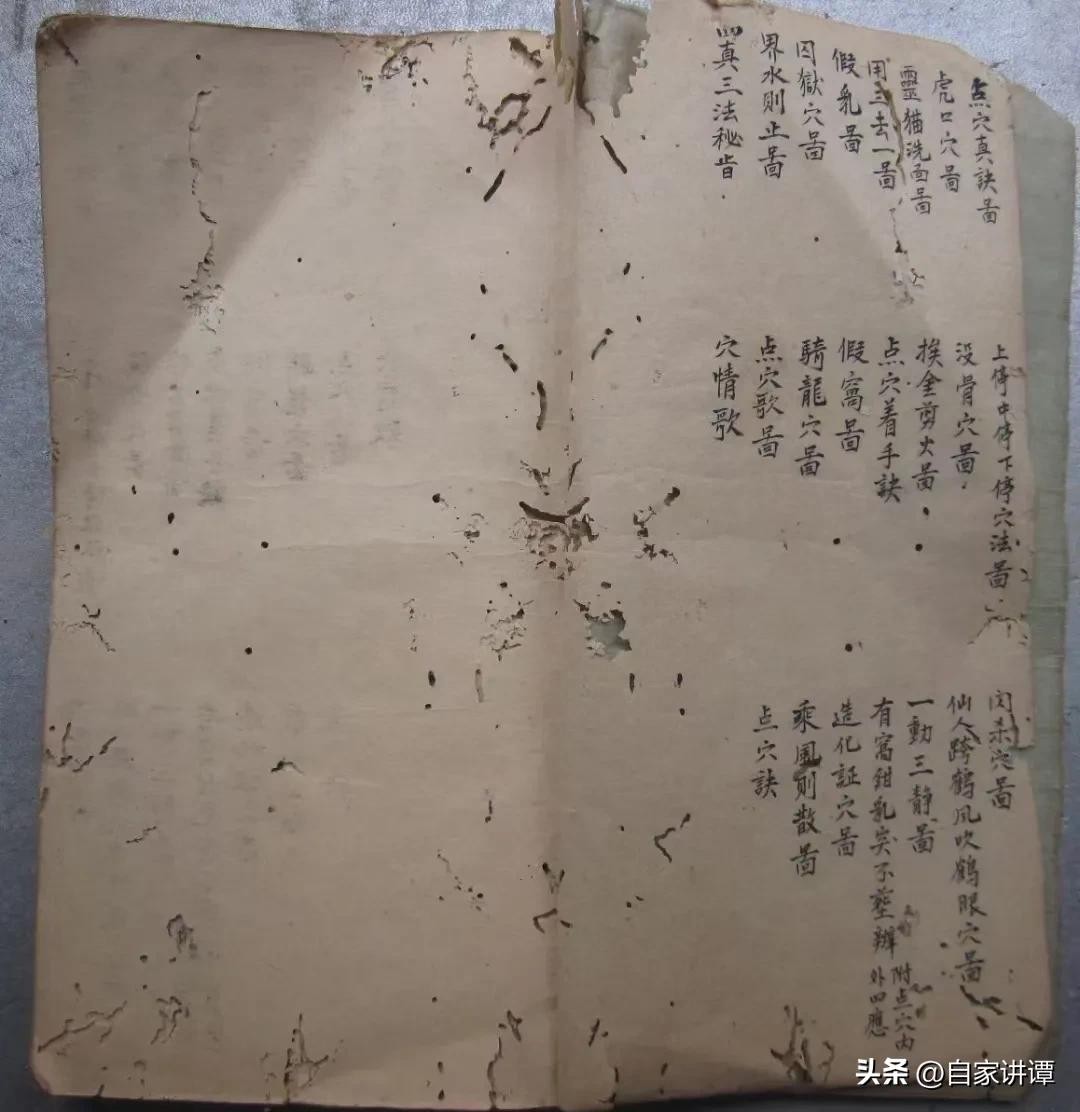 点穴真訣啚
上停中停下停穴法啚
闪杀穴啚
虎口穴啚
没骨穴啚
仙人跨鶴风吹鶴眼穴啚
靈猫洗面啚
挨金剪火啚
一動三静啚
用三去一啚
点穴着手訣
有窩鉗乳突不塟辨
附点穴内
外四應
假乳啚
假窩啚
造化証穴啚
囚獄穴啚
騎龍穴啚
乘風則散啚
界水則止啚
点穴歌啚
点穴訣
四真三法秘旨
穴情歌
头条 @自家讲谭